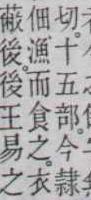 切。十五部。今隸
佃漁而食之。衣
蔽後。後王易之